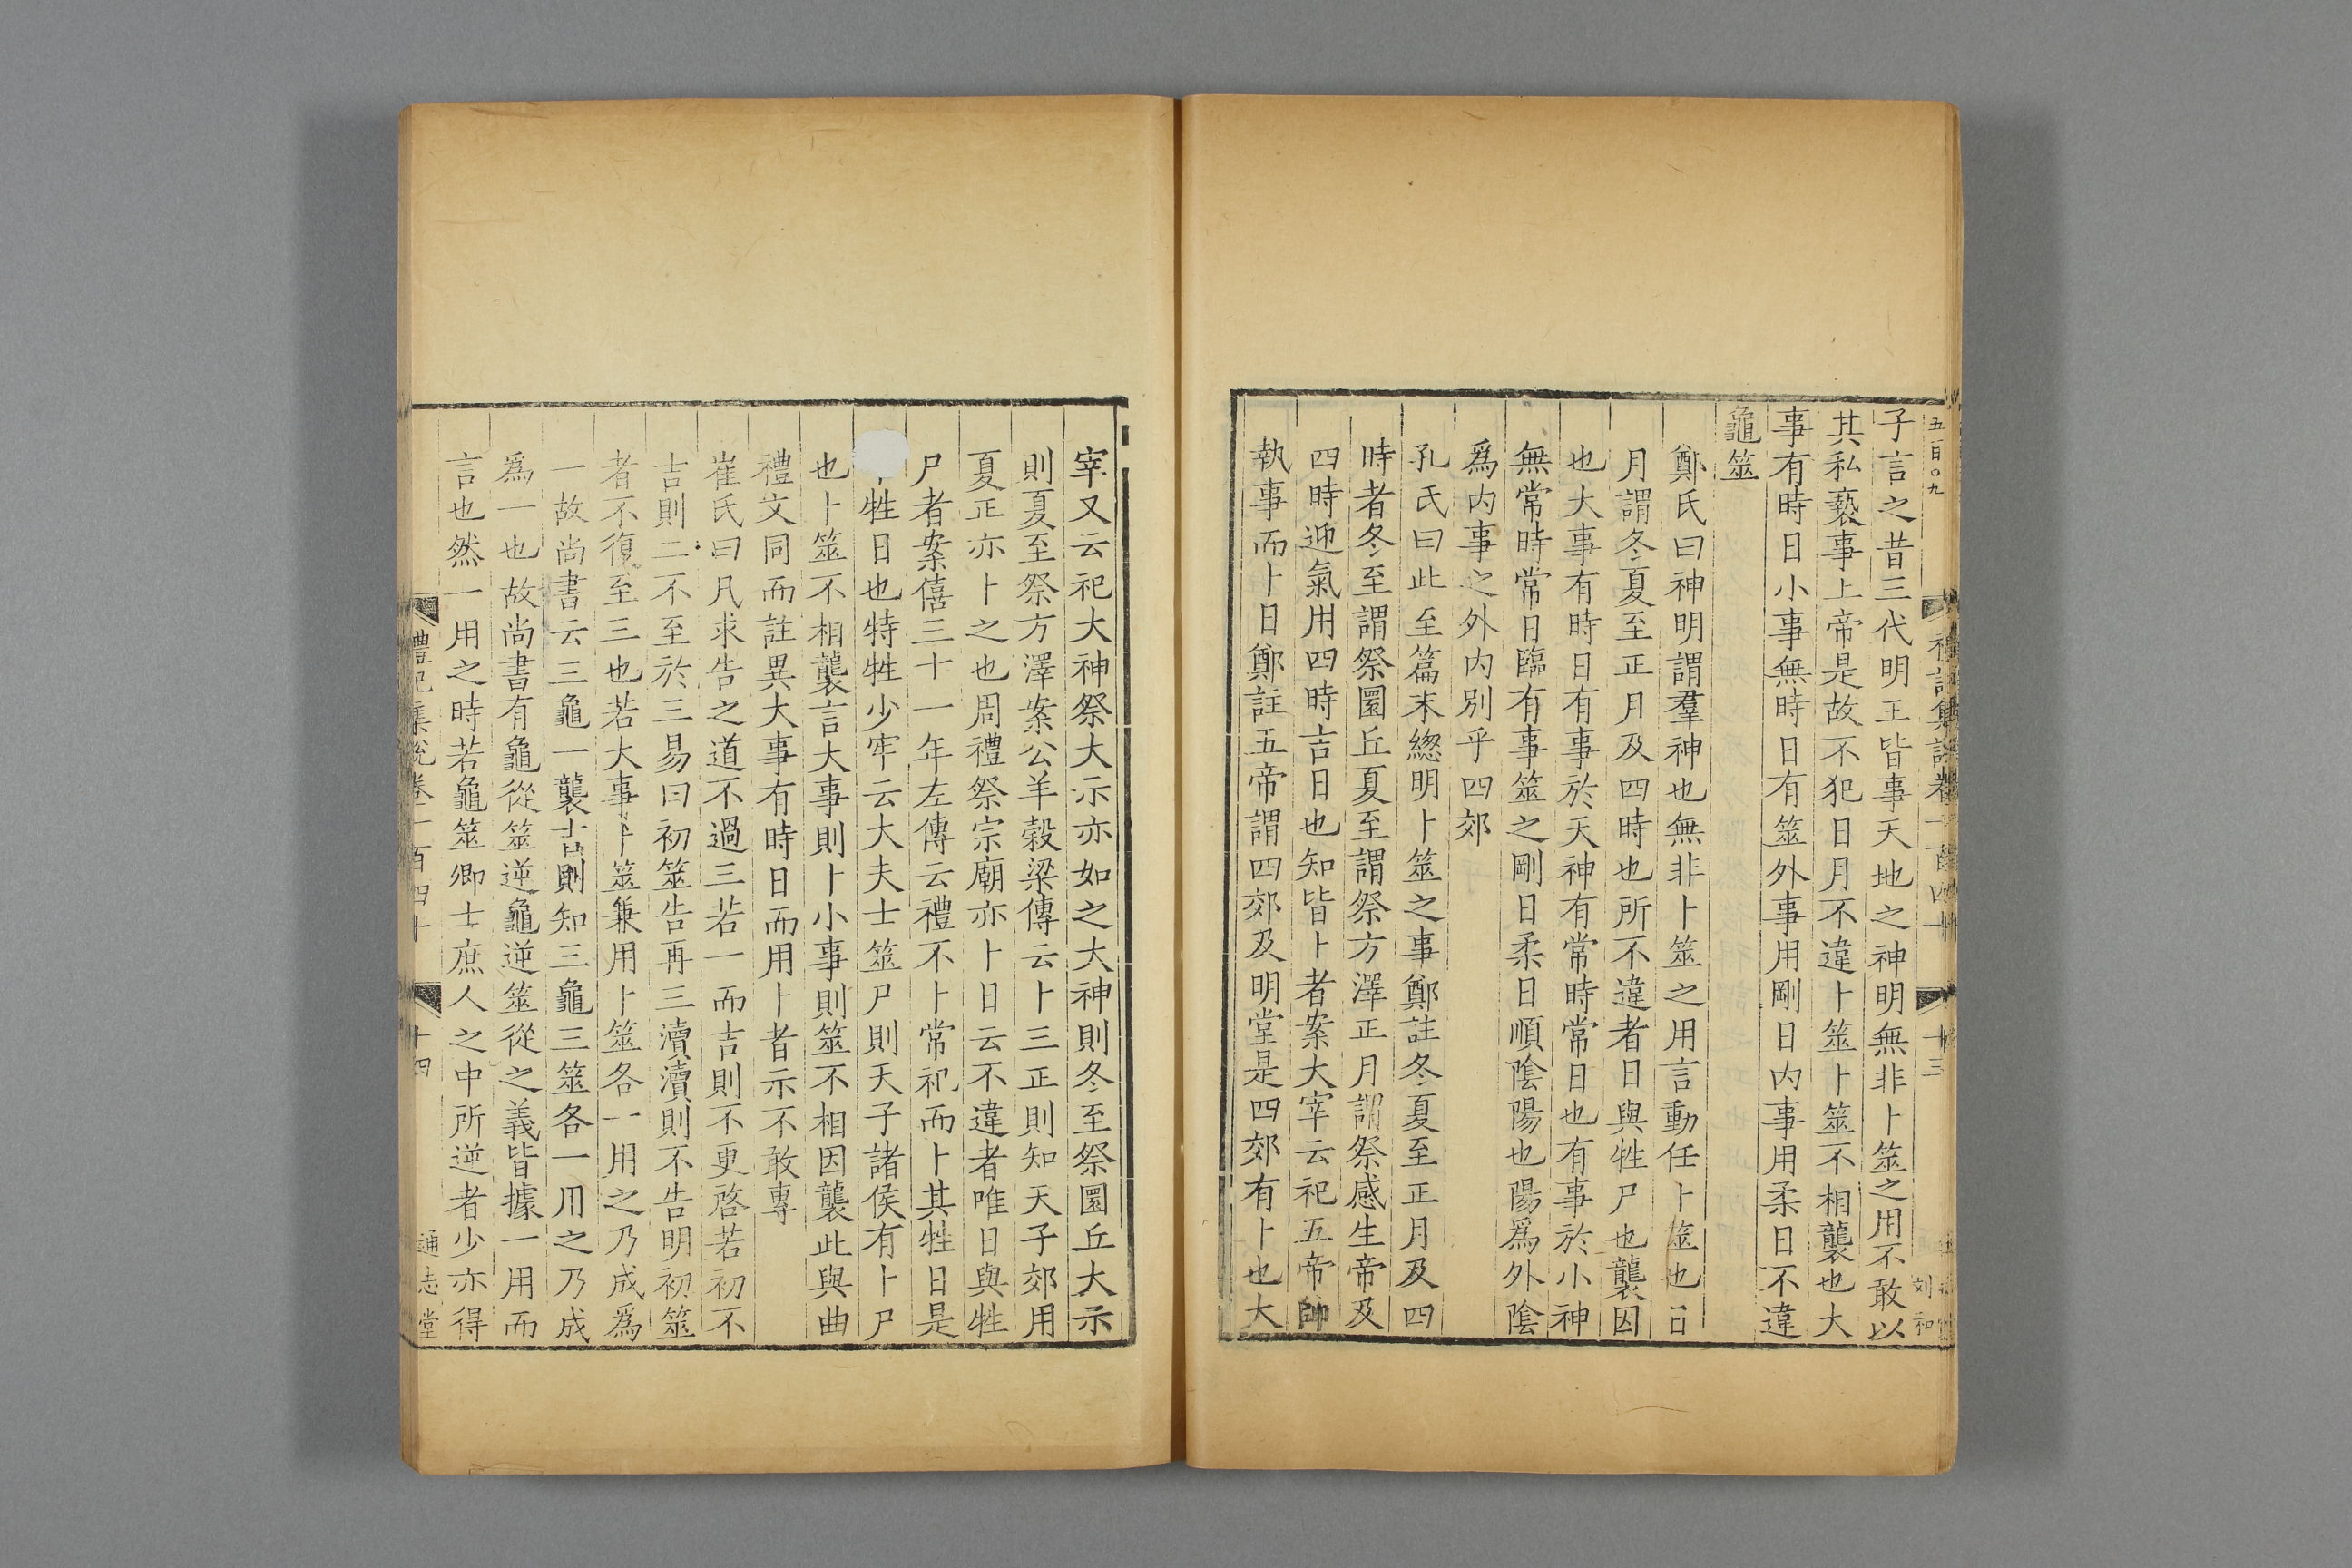 五百〇九
子言之昔三代明王皆事天地之神明無非卜筮之用不敢以
其私䙝事上帝是故不犯日月不違卜筮卜筮不相襲也大
事有時日小事無時日有筮外事用剛日内事用柔日不違
龜筮
鄭氏曰神明謂羣神也無非卜筮之用言動任卜筮也日
月謂冬夏至正月及四時也所不違者日與牲尸也襲因
也大事有時日有事於天神有常時常日也有事於小神
無常時常日臨有事筮之剛日柔日順陰陽也陽爲外陰
爲内事之外内別乎四郊
孔氏曰此至篇末緫明卜筮之事鄭註冬夏至正月及四
時者冬至謂祭圜丘夏至謂祭方澤正月謂祭感生帝及
四時迎氣用四時吉日也知皆卜者案大宰云祀五帝帥
執事而卜日鄭註五帝謂四郊及明堂是四郊有卜也大
十三
刘和
宰又云祀大神祭大示亦如之大神則冬至祭圜丘大示
則夏至祭方澤案公羊穀梁傳云卜三正則知天子郊用
夏正亦卜之也周禮祭宗廟亦卜日云不違者唯日與牲
尸者案僖三十一年左傳云禮不卜常祀而卜其牲日是
牲日也特牲少牢云大夫士筮尸則天子諸侯有卜尸
也卜筮不相襲言大事則卜小事則筮不相因襲此與曲
禮文同而註異大事有時日而用卜者示不敢專
崔氏曰凡求告之道不過三若一而吉則不更啓若初不
吉則二不至於三易曰初筮告再三瀆瀆則不告明初筮
者不復至三也若大事卜筮兼用卜筮各一用之乃成爲
一故尚書云三龜一襲吉則知三龜三筮各一用之乃成
爲一也故尚書有龜從筮逆龜逆筮從之義皆據一用而
言也然一用之時若龜筮卿士庶人之中所逆者少亦得
禮記集說卷一百四十
十四
通志堂